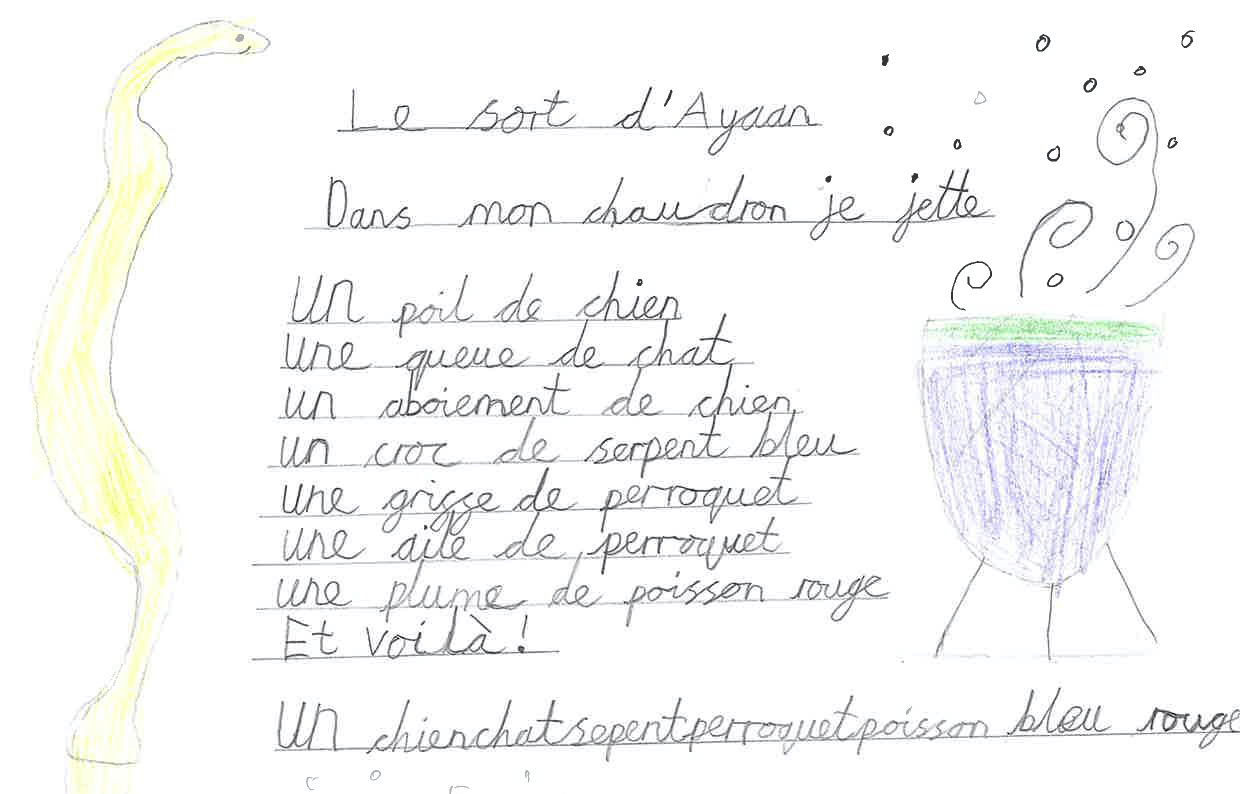 Le sort d'Ayaan
Dans mon chaudron je jette
Un poil de chien
une queue de chat
un aboiement de chien
un croc de serpent bleu
une grisse de perroquet
une aile de perroquet
une plume de poisson rouge
Et voilà!
Un chienchatsepentperroquetpoisson bleu rouge